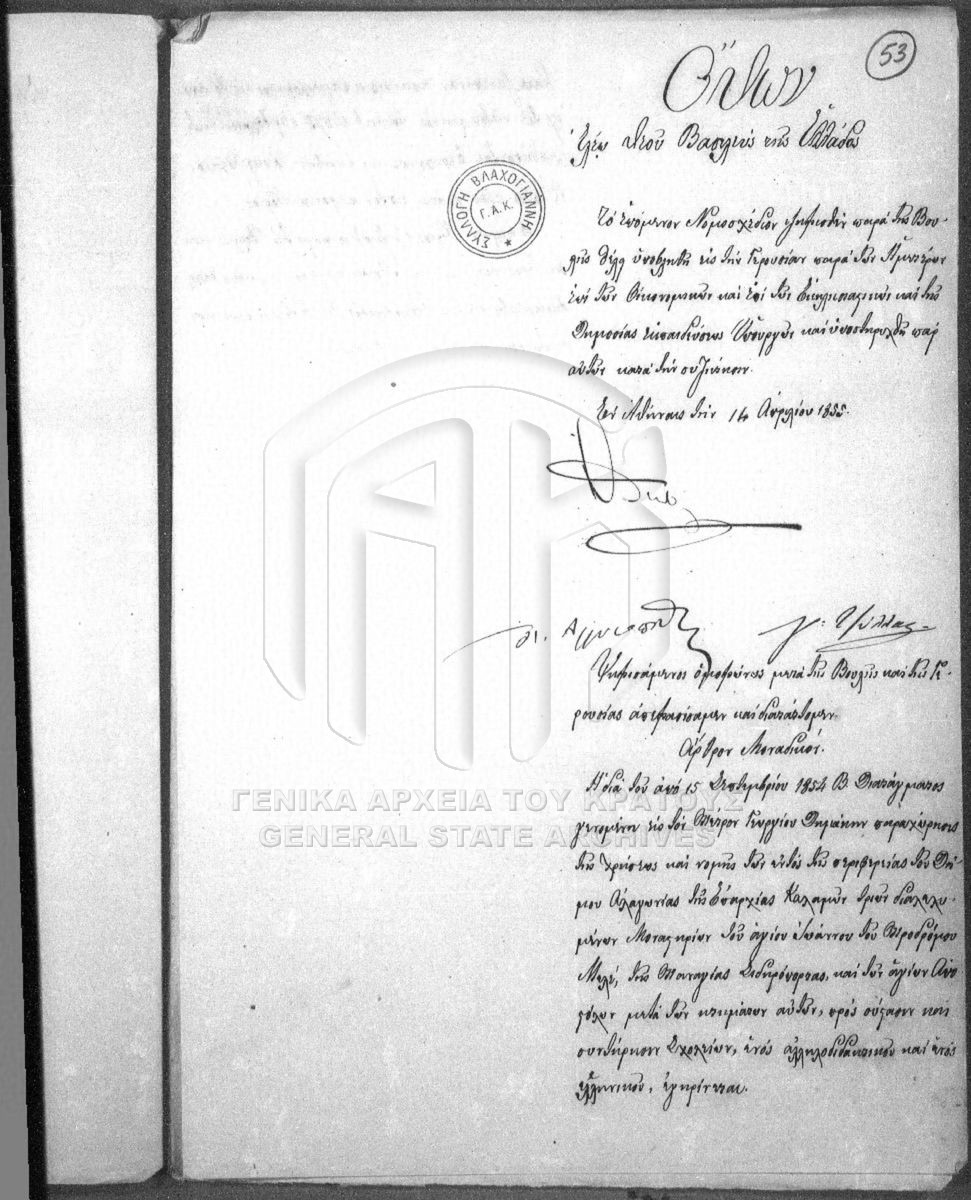 53
Ὄθων
Ἐλέῳ Θεοῦ Βασιλεὺς τῆς Ἑλλάδος
ΣΥΛΛΟΓΗ ΒΛΑΧΟΓΙΑΝΝΗ
Γ.Α.Κ.
Τὸ ἑπόμενον Νομοσχέδιον ψηφισθὲν παρὰ τῆς Βου-
λῆς θέλει ὑποβληθῆ εἰς τὴν Γερουσίαν παρὰ τῶν Ἡμετέρων
ἐπὶ τῶν Οἰκονομικῶν καὶ ἐπὶ τῶν Ἐκκλησιαστικῶν καὶ τῆς
Δημοσίας ἐκπαιδεύσεως Ὑπουργῶν καὶ ὑποστηριχθῆ παρ'
αὐτῶν κατὰ τὴν συζήτησιν.
Ἐν Ἀθήναις τὴν 14 Ἀπριλίου 1855.
Ὄθων
Γ. Ψύλλας
Ψηφισάμενοι ὁμοφώνως μετὰ τῆς Βουλῆς καὶ τῆς Γε-
ρουσίας ἀπεφασίσαμεν καὶ διατάττομεν.
Ἄρθρον Μοναδικόν.
Ἡ διὰ τοῦ ἀπὸ 15 Σεπτεμβρίου 1854 Β. Διατάγματος
γενομένη εἰς τὸν Πέτρον Γεωργίου παραχώρησις
τῆς χρήσεως καὶ νομῆς τῶν ἐντὸς τῆς περιφερείας τοῦ Δή-
μου Ἀλαγωνίας τῆς Ἐπαρχίας Καλαμῶν τριῶν διαλελυ-
μένων Μοναστηρίων τοῦ ἁγίου Ἰωάννου τοῦ Προδρόμου
τῆς Παναγίας Σιδηρόπορτας, καὶ τῶν ἁγίων Ἀπο-
στόλων μετὰ τῶν κτημάτων αὐτῶν, πρὸς σύστασιν καὶ
συντήρησιν Σχολείων, ἑνὸς ἀλληλοδιδακτικοῦ καὶ ἑνὸς
ἑλληνικοῦ, ἐγκρίνεται.
ΓΕΝΙΚΑ ΑΡΧΕΙΑ ΤΟΥ ΚΡΑΤΟΥΣ
GENERAL STATE ARCHIVES